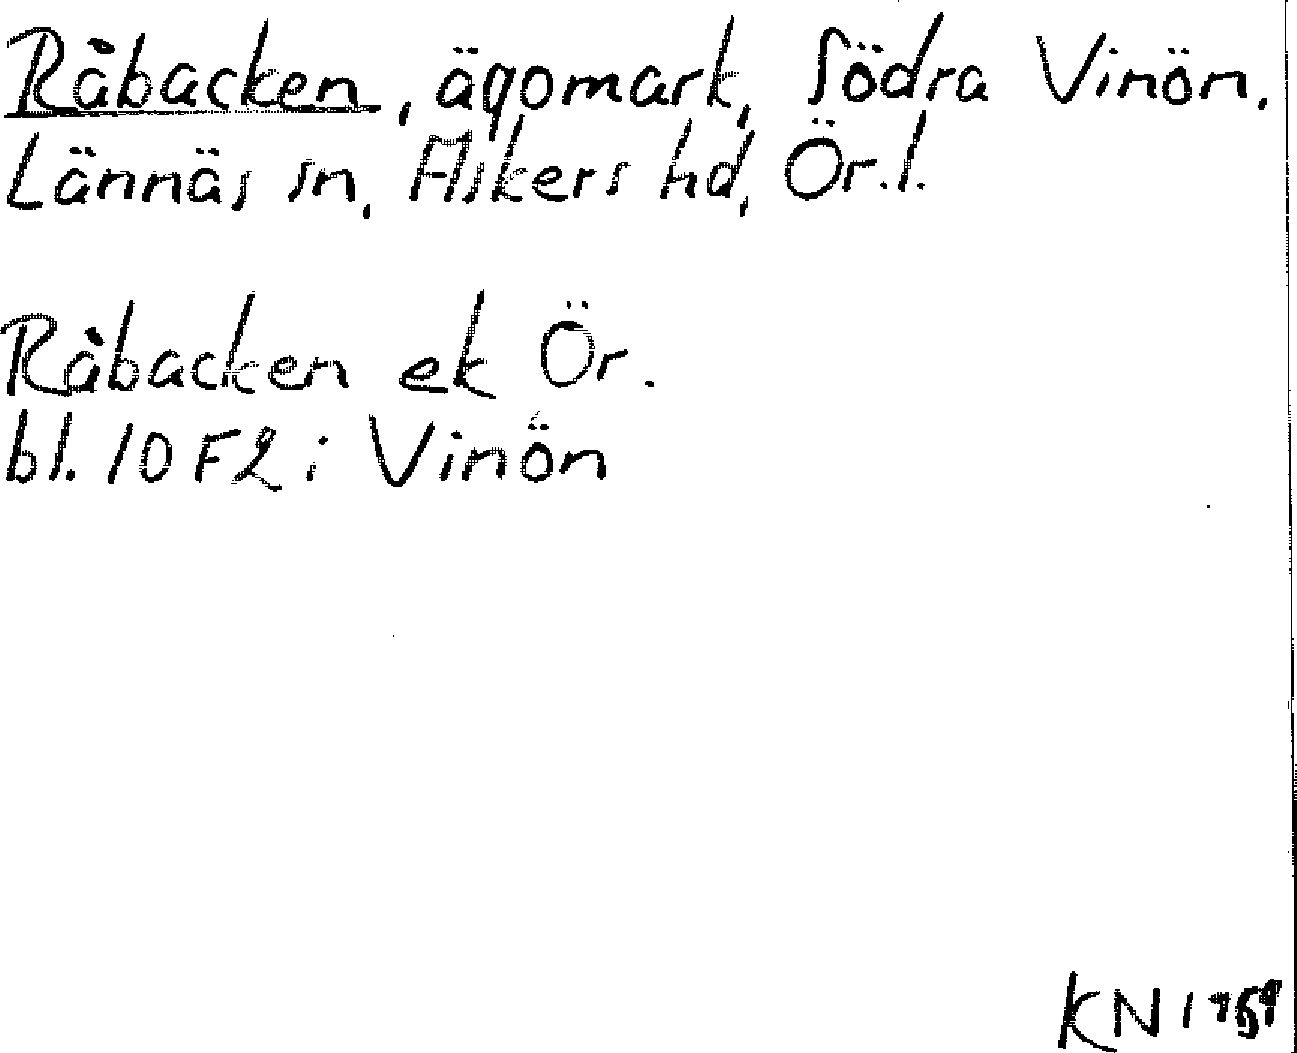 Råbacken, ägomark, Södra Vinön,
Lännäs sn, Askers hd, Ör. l.
Råbacken ek Ör.
bl. 10 F2 i Vinön
KN